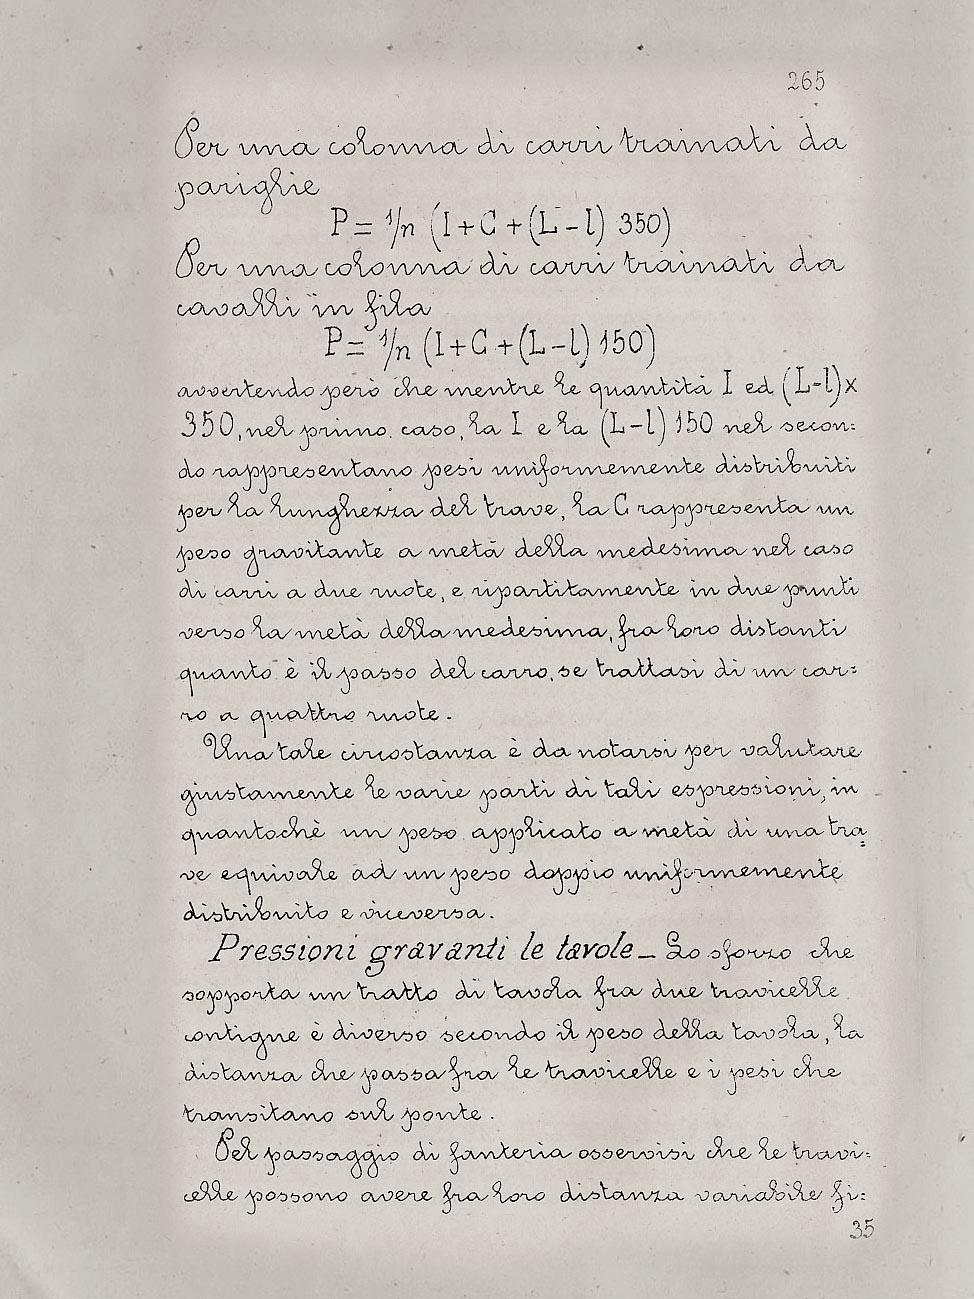 265
Per una colonna di carri trainati da
pariglie
P = 1/n (I + C + (L - l) 350)
Per una colonna di carri trainati da
cavalli in fila
P = 1/n (I + C + (L - l) 150)
avvertendo però che mentre le quantità I ed (L-l)×
350, nel primo caso, la I e la (L-l) 150 nel secon:
do rappresentano pesi uniformemente distribuiti
per la lunghezza del trave, la C rappresenta un
peso gravitante a metà della medesima nel caso
di carri a due ruote, e ripartitamente in due punti
verso la metà della medesima, fra loro distanti
quanto è il passo del carro, se trattasi di un car:
ro a quattro ruote.
Una tale circostanza è da notarsi per valutare
giustamente le varie parti di tali espressioni, in
quantochè un peso applicato a metà di una tra=
ve equivale ad un peso doppio uniformemente
distribuito e viceversa.
Pressioni gravanti le tavole – Lo sforzo che
sopporta un tratto di tavola fra due travicelle
contigue è diverso secondo il peso della tavola, la
distanza che passa fra le travicelle e i pesi che
transitano sul ponte.
Pel passaggio di fanteria osservisi che le travi:
celle possono avere fra loro distanza variabile fi:
35